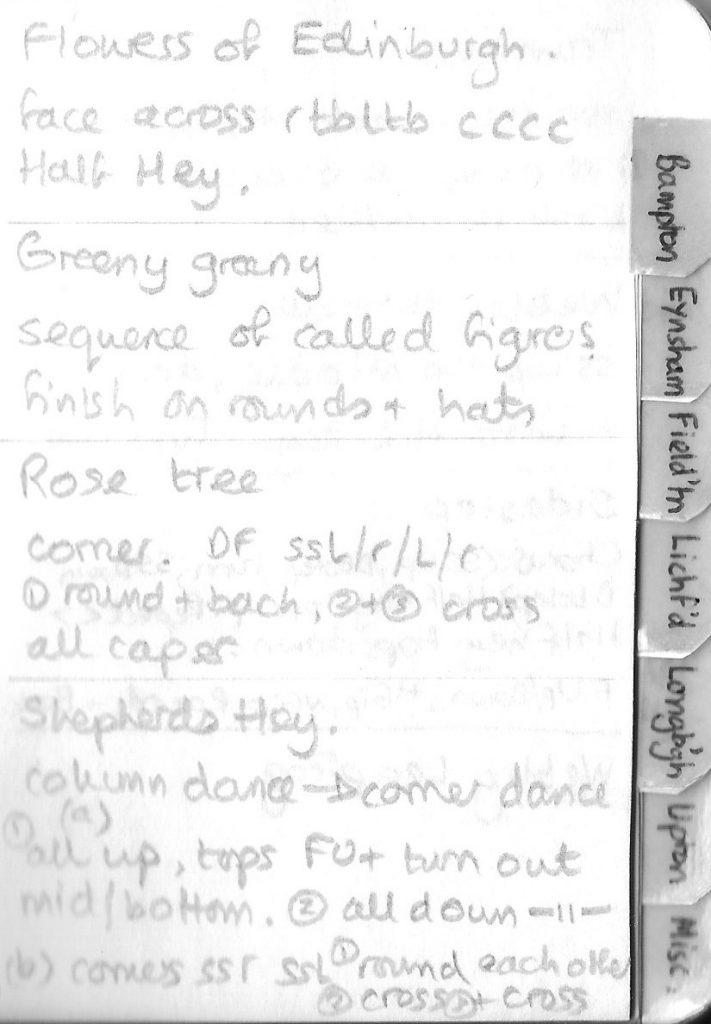 Flowers of Edinburgh.
face across rtbltb cccc
Half Hey.
Greeny greeny
sequence of called figres
finish on rounds + hats
Rose tree
corner. DF ssL/r/L/r
① round + bach, ②+③ cross
all capss
Shepherds Hey.
column dance → corner dance
① (a)
all up, tops FU + turn out
mid/bottom. ② all down -11-
(b) corners ssr ssL ① round each other
② cross ③ + cross
Bampton
Eynsham
Field'tn
Lichf'd
Longb'gh
Upton
Misc.